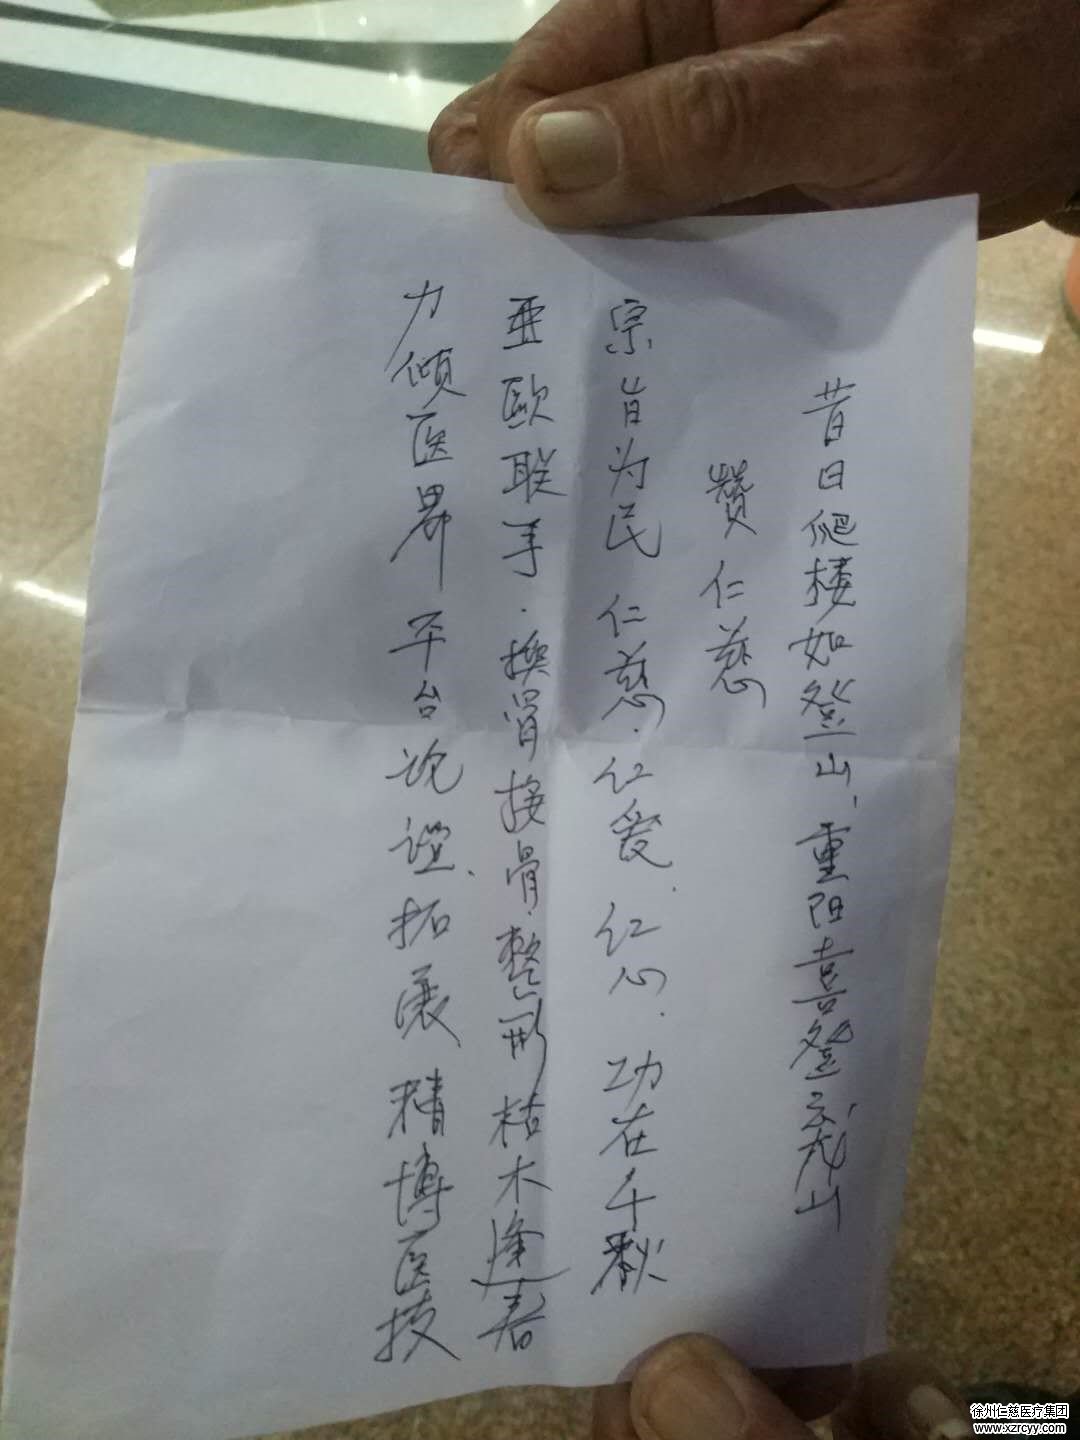 昔日爬楼如登山、重阳喜登云龙山
赞仁慈
宗旨为民 仁慈.仁爱.仁心.功在千秋
亚欧联手.换骨接骨.整形枯木逢春
力倾医界平台论证、拓展、精博医技
徐州仁慈医疗集团
www.xzrcyy.com